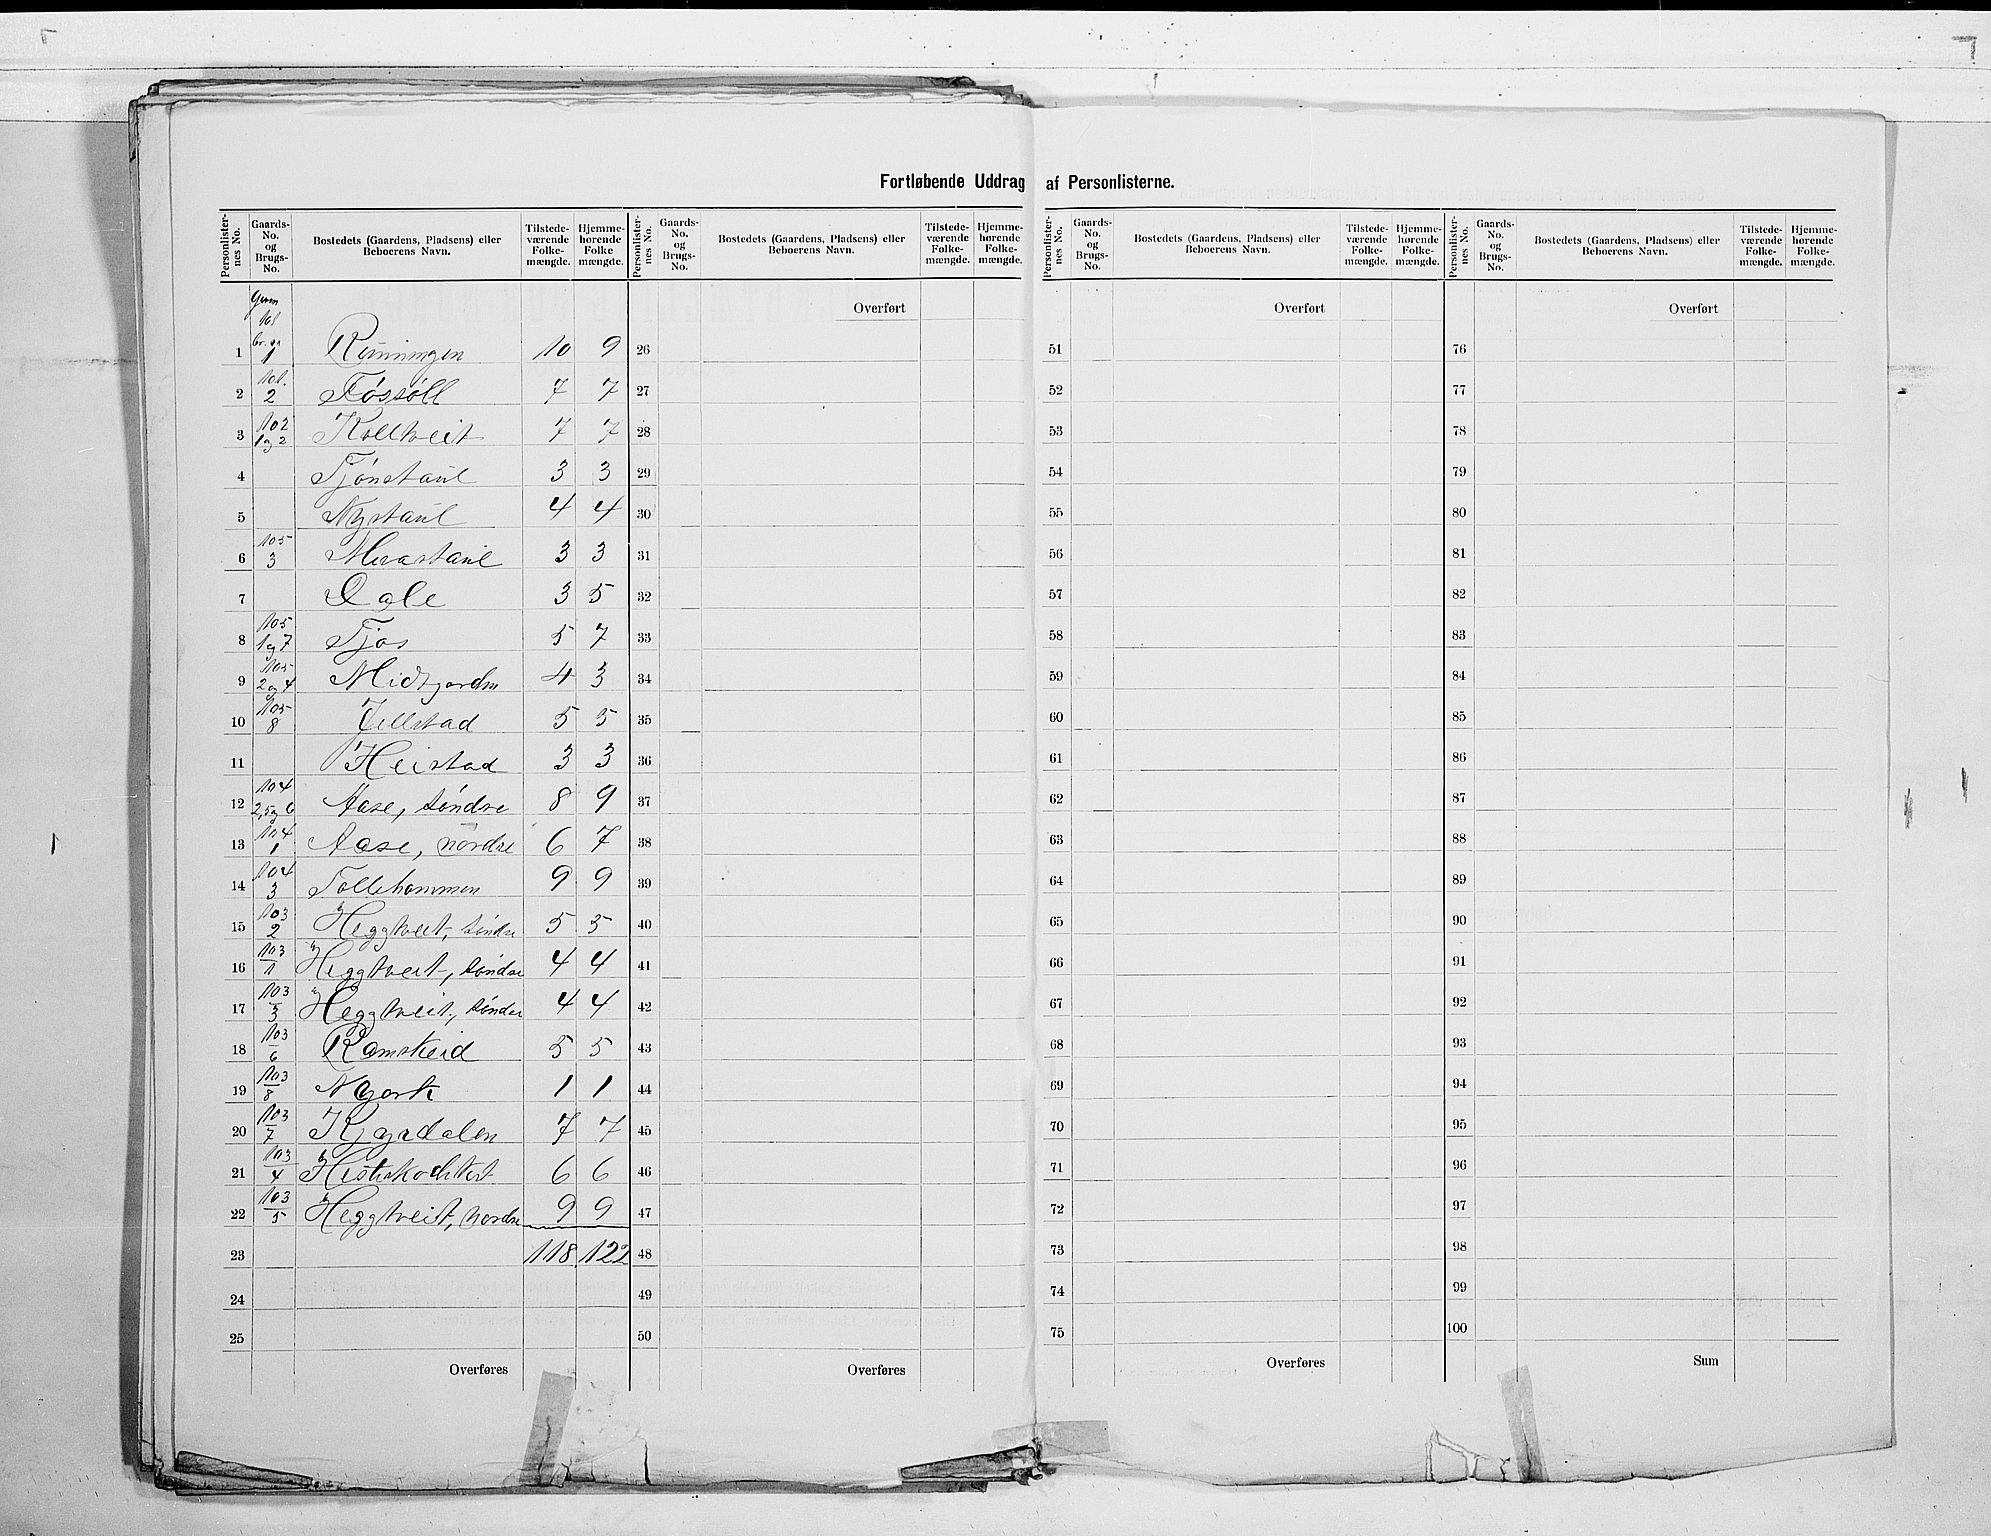 Fortløbende Uddrag af Personlisterne.
Personlister-nes No. Gaards-No. og Brugs-No. Bostedets (Gaardens, Pladsens) eller Beboerens Navn. Tilstede-værende Folke-mængde. Hjemme-hørende Folke mængde.
Personlister-nes No. Gaards-No. og Brugs-No. Bostedets (Gaardens, Pladsens) eller Beboerens Navn. Tilstede-værende Folke-mængde. Hjemme-hørende Folke-mængde.
Personlister-nes No. Gaards-No. og Brugs-No. Bostedets (Gaardens, Pladsens) eller Beboerens Navn. Tilstede-værende Folke-mængde. Hjemme-hørende Folke-mængde.
Personlister-nes No. Gaards-No. og Brugs-No. Bostedets (Gaardens, Pladsens) eller Beboerens Navn. Tilstede-værende Folke-mængde. Hjemme-hørende Folke-mængde.
101
1 1 Rünningen 10 9
2 101. 2 Fössöll 7 7
3 102 1 og 2 Kolltveit 7 7
4 Tjönstaul 3 3
5 Nystaul 4 4
6 105 3 Mevastaul 3 3
7 Dale 3 5
8 105 1 og 7 Tjos 5 7
9 105 2 og 4 Midtgarden 4 3
10 105 8 Jellstad 5 5
11 Heistad 3 3
12 104 2, 5 og 6 Aase, söndre 8 9
13 104 1 Aase, nordre 6 7
14 104 3 Tollehammen 9 9
15 103 2 Heggtveit, söndre 5 5
16 103 1 Heggtveit, söndre 4 4
17 103 3 Heggtveit, söndre 4 4
18 103 6 Ramskeid 5 5
19 103 8 Nyork 1 1
20 103 7 Kyrdalen 7 7
21 103 4 6 6
22 103 5 Heggtveit, nordre 9 9
23 118 122
24
25
Overføres
Overført
26
27
28
29
30
31
32
33
34
35
36
37
38
39
40
41
42
43
44
45
46
47
48
49
50
Overføres
Overført
51
52
53
54
55
56
57
58
59
60
61
62
63
64
65
66
67
68
69
70
71
72
73
74
75
Overføres
Overført
76
77
78
79
80
81
82
83
84
85
86
87
88
89
90
91
92
93
94
95
96
97
98
99
100
Sum